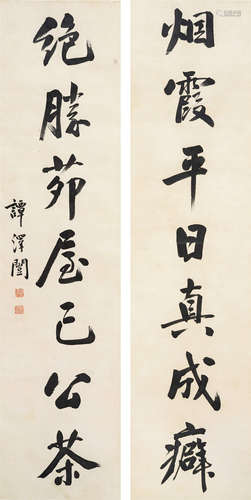 烟霞平日真成癖
绝胜茆屋已公茶
譚澤闓